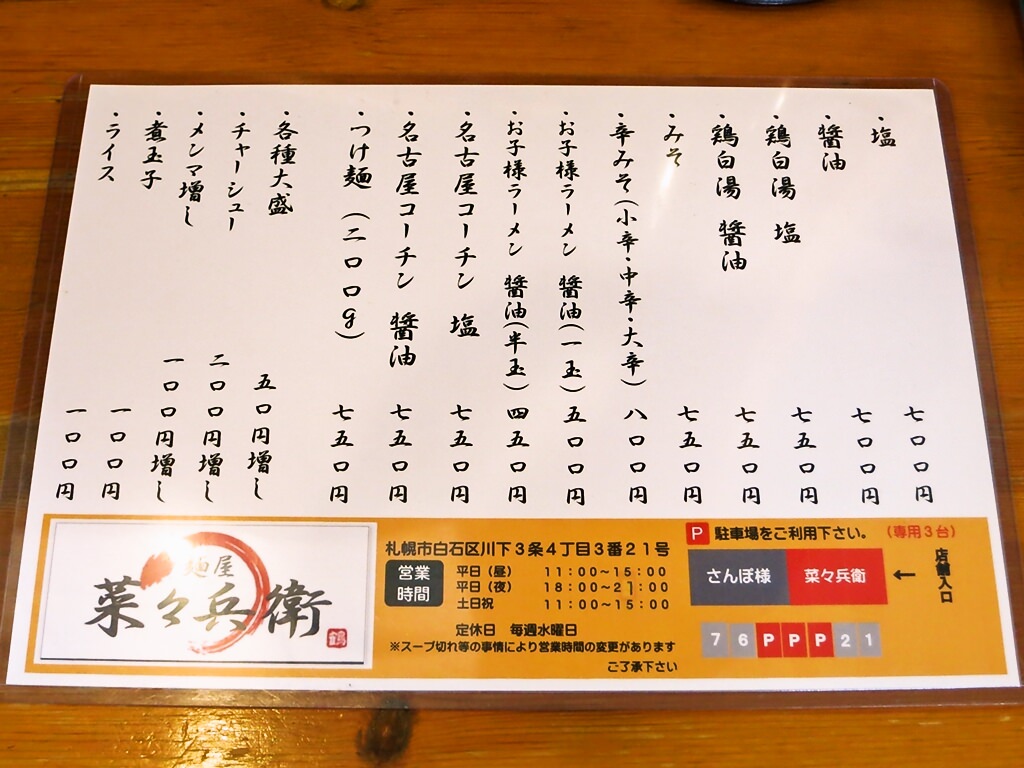 ・塩 七〇〇円
・醤油 七〇〇円
・鶏白湯 塩 七五〇円
・鶏白湯 醤油 七五〇円
・みそ 七五〇円
・辛みそ(小辛・中辛・大辛) 八〇〇円
・お子様ラーメン 醤油(一玉) 五〇〇円
・お子様ラーメン 醤油(半玉) 四五〇円
・名古屋コーチン 塩 七五〇円
・名古屋コーチン 醤油 七五〇円
・つけ麺(二〇〇g) 七五〇円
・各種大盛 五〇円増し
・チャーシュー 二〇〇円増し
・メンマ増し 一〇〇円増し
・煮玉子 一〇〇円
・ライス 一〇〇円
麺屋
菜々兵衛
鶏
札幌市白石区川下3条4丁目3番21号
営業時間
平日(昼) 11:00～15:00
平日(夜) 18:00～21:00
土日祝 11:00～15:00
定休日 毎週水曜日
※スープ切れ等の事情により営業時間の変更があります
ご了承下さい
P 駐車場をご利用下さい。(専用3台)
さんぽ様 菜々兵衛 ← 店舗入口
7 6 P P P 2 1